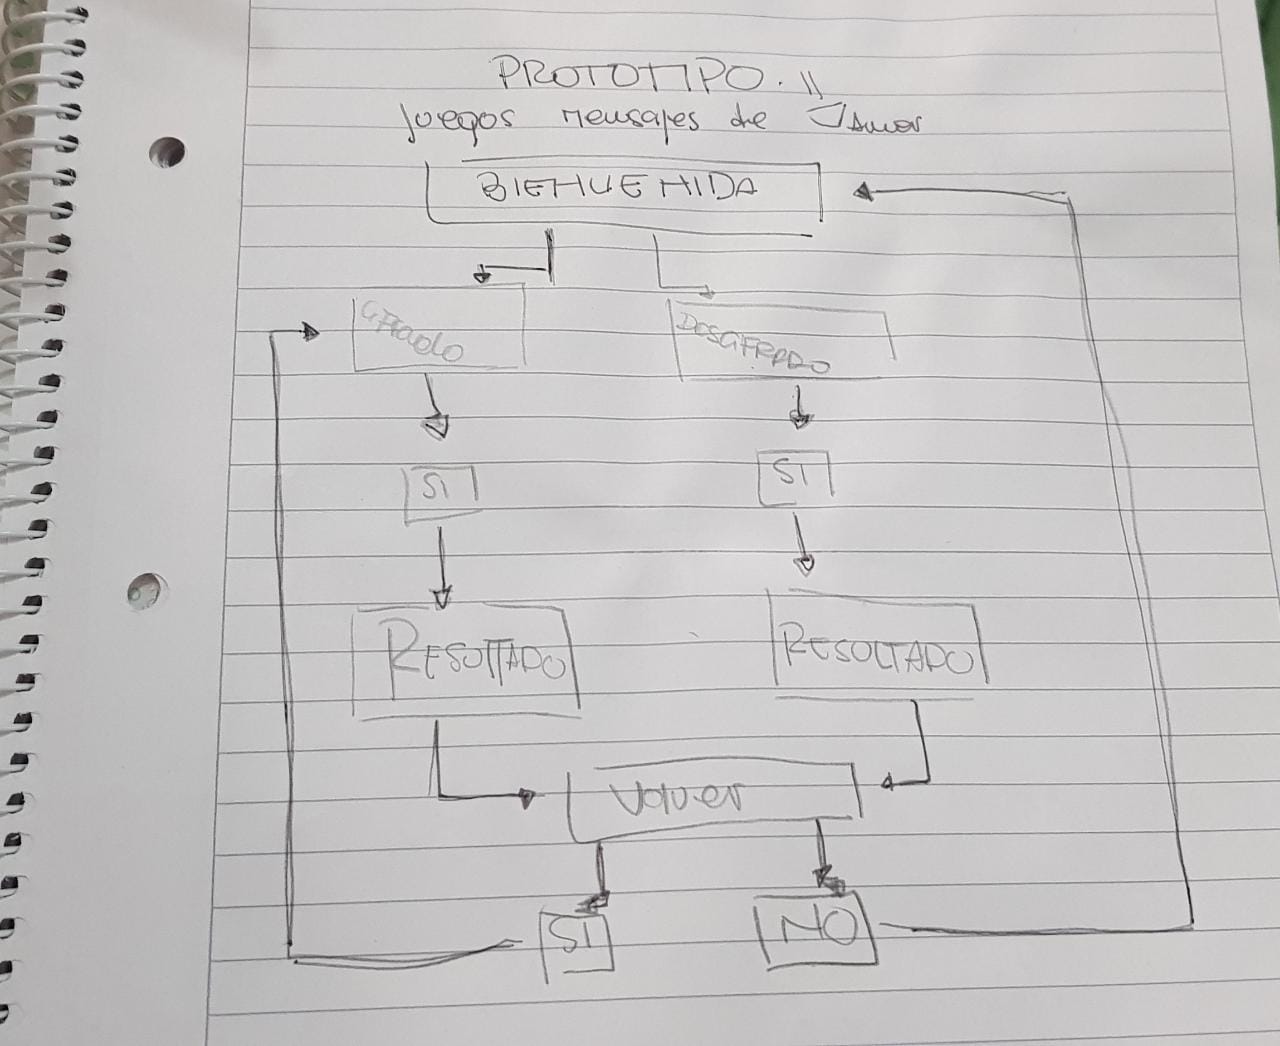 PROTOTIPO. 11
Juegos mensajes de Amor
BIENVENIDA
CIFRADO
DESCIFRADO
SI
SI
RESULTADO
RESOLTADO
Volver
SI
NO